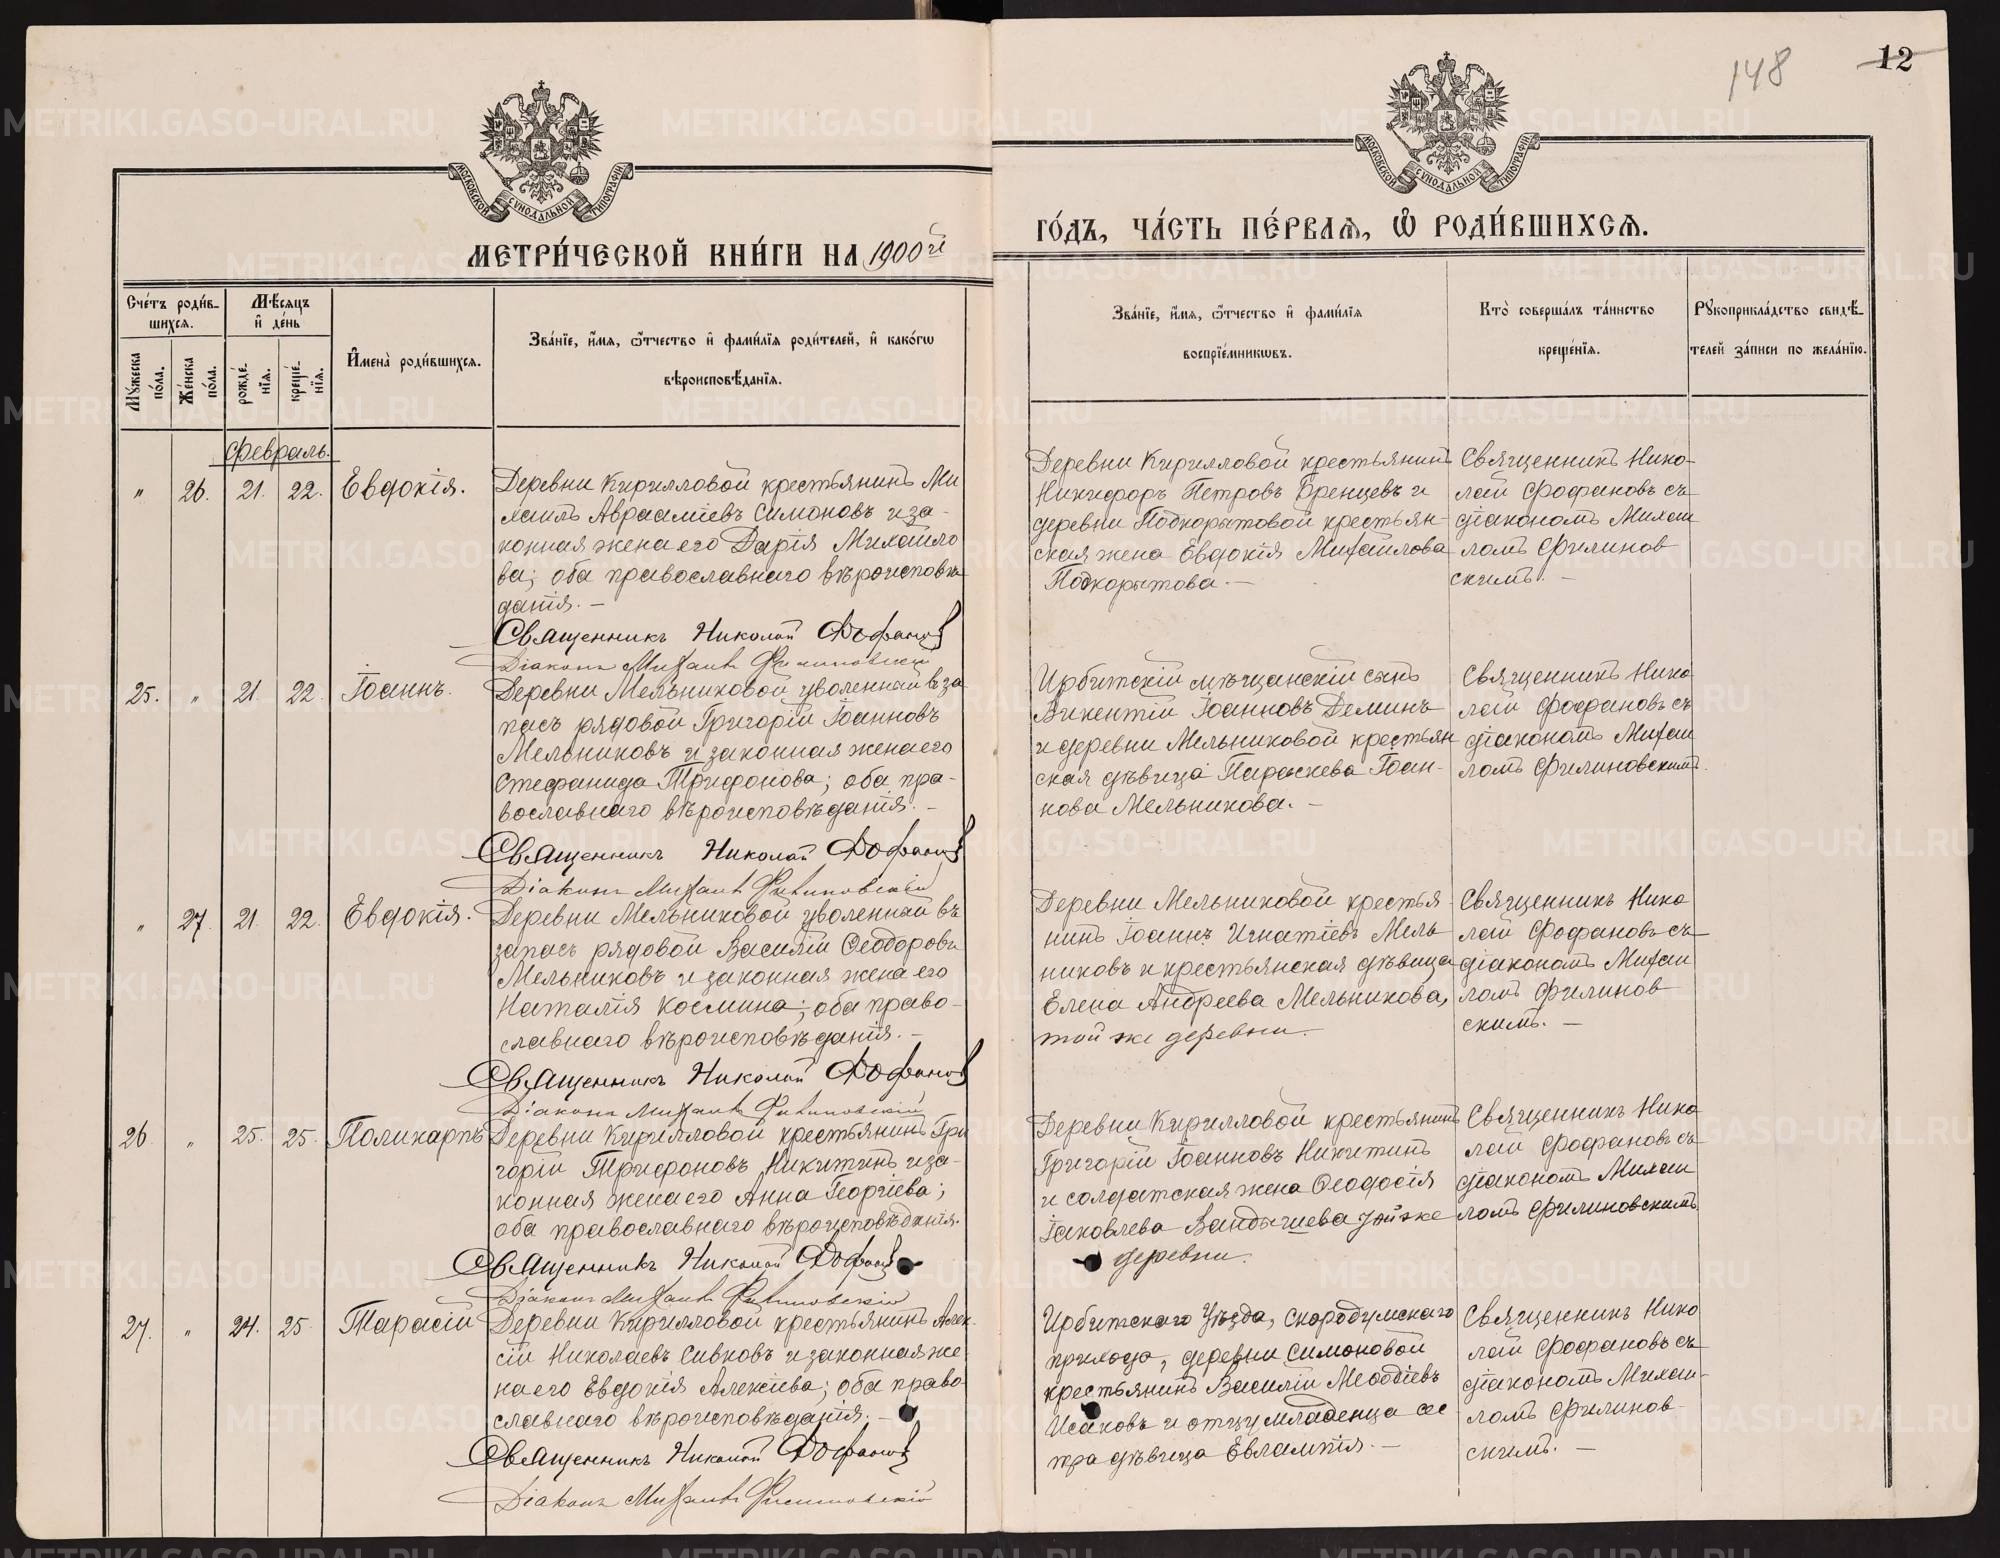 148
12
МОСКОВСКОЙ СУНОДАЛЬНОЙ ТИПОГРАФІИ
МОСКОВСКОЙ СУНОДАЛЬНОЙ ТИПОГРАФІИ
МЕТРИ́ЧЕСКОЙ КНИ́ГИ НА 1900й
ГО́ДЪ, ЧА́СТЬ ПЕ́РВАѦ, Ѿ РОДИ́ВШИХСѦ.
Сче́тъ роди́в-
шихсѧ.
Мѣ́сѧцъ
и҆ де́нь
Мꙋ́жеска по́ла.
Же́нска по́ла.
рожде́-
нїѧ.
креще́-
нїѧ.
И҆мена̀ роди́вшихсѧ.
Зва́нїе, и҆́мѧ, ѻ҆́тчество и҆ фами́лїѧ роди́телей, и҆ како́гѡ
вѣроисповѣ́данїѧ.
Зва́нїе, и҆́мѧ, ѻ҆́тчество и҆ фами́лїѧ
воспрїе́мникѡвъ.
Кто̀ соверша́лъ та́инство
креще́нїѧ.
Рꙋкоприкла́дство свидѣ́-
телей за́писи по жела́нїю.
Февраль.
" 26. 21. 22. Евдокія.
Деревни Кирилловой крестьянинъ Ми
хаилъ Авраамiевъ Симоновъ и за-
конная жена его Дарія Михаило
ва; оба православнаго вѣроисповѣ
данія. —
Священникъ Николай Фофановъ
Діаконъ Михаилъ Филиновскій
Деревни Кирилловой крестьянинъ
Никифоръ Петровъ Бренцевъ и
деревни Подкорытовой крестьян-
ская жена Евдокія Михаилова
Подкорытова. —
Священникъ Нико-
лай Фофановъ съ
діакономъ Михаи
ломъ Филинов
скимъ. —
25. " 21. 22. Іоаннъ.
Деревни Мельниковой уволенный въ за
пасъ рядовой Григорій Іоанновъ
Мельниковъ и законная жена его
Стефанида Трифонова; оба пра-
вославнаго вѣроисповѣданія. —
Священникъ Николай Фофановъ
Діаконъ Михаилъ Филиновскій
Ирбитскій мѣщанскій сынъ
Викентій Іоанновъ Деминъ
и деревни Мельниковой крестьян
ская дѣвица Параскева Іоан-
нова Мельникова. —
Священникъ Нико
лай Фофановъ съ
діакономъ Михаи
ломъ Филиновскимъ.
" 27. 21. 22. Евдокія.
Деревни Мельниковой уволенный въ
запасъ рядовой Василій Ѳеодоровъ
Мельниковъ и законная жена его
Наталія Космина; оба право-
славнаго вѣроисповѣданія. —
Священникъ Николай Фофановъ
Діаконъ Михаилъ Филиновскій
Деревни Мельниковой крестья
нинъ Іоаннъ Игнатіевъ Мель
никовъ и крестьянская дѣвица
Елена Андреева Мельникова,
той же деревни. —
Священникъ Нико
лай Фофановъ съ
діакономъ Михаи
ломъ Филинов
скимъ. —
26. " 25. 25. Поликарпъ
Деревни Кирилловой крестьянинъ Гри
горій Трифоновъ Никитинъ и за-
конная жена его Анна Георгіева;
оба православнаго вѣроисповѣданія.
Священникъ Николай Фофановъ
Діаконъ Михаилъ Филиновскій
Деревни Кирилловой крестьянинъ
Григорій Іоанновъ Никитинъ
и солдатская жена Ѳеодосія
Іаковлева той же
деревни.
Священникъ Нико
лай Фофановъ съ
діакономъ Михаи
ломъ Филиновскимъ
27. " 24. 25. Тарасій
Деревни Кирилловой крестьянинъ Алек-
сій Николаевъ Сивковъ и законная же
на его Евдокія Алексіева; оба право-
славнаго вѣроисповѣданія. —
Священникъ Николай Фофановъ
Діаконъ Михаилъ Филиновскій
Ирбитскаго Уѣзда, Скородумскаго
прихода, деревни Симоновой
крестьянинъ Василій Меѳодіевъ
Исаковъ и отцу младенца сес
тра дѣвица Евлампія. —
Священникъ Нико
лай Фофановъ съ
діакономъ Михаи-
ломъ Филинов-
скимъ. —
METRIKI.GASO-URAL.RU